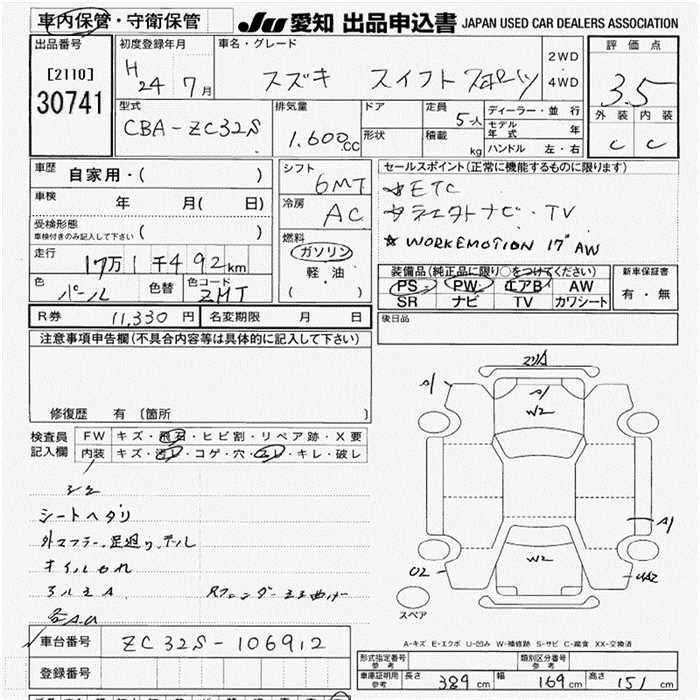 車内保管・守衛保管
JU 愛知 出品申込書 JAPAN USED CAR DEALERS ASSOCIATION
出品番号
[2110]
30741
初度登録年月
H 24 7月
車名・グレード
スズキ スイフト スポーツ
2WD
4WD
評価点
3.5
外装 内装
C C
型式
CBA-ZC32S
排気量
1.600cc
ドア
形状
定員
5人
積載
kg
ディーラー・並行
モデル年式 年
ハンドル 左・右
車歴
自家用・( )
車検
年 月( 日)
受検形態
車検付きのみ記入して下さい ( )
走行
17万1千492km
色
パール
色替
色コード
ZMT
シフト
6MT
冷房
AC
燃料
ガソリン
軽・油
( )
セールスポイント(正常に機能するものに限ります)
☆ETC
☆ナビ・TV
☆WORKEMOTION 17"AW
装備品(純正品に限り○をつけてください)
PS PW エアB AW
SR ナビ TV カワシート
新車保証書
有・無
R券 11,330円 名変期限 月 日
後日品
注意事項申告欄(不具合内容等は具体的に記入して下さい)
修復歴 有(箇所 )
検査員記入欄
FW キズ・飛石・ヒビ割・リペア跡・X要
内装 キズ・汚レ・コゲ・穴・スレ・キレ・破レ
シートヘタリ
外マフラー、足廻り、
オイルもれ
A1
A1
W2
A1
W2
U2
UA2
スペア
A-キズ E-エクボ U-凹み W-補修跡 S-サビ C-腐食 XX-交換済
車台番号 ZC32S-106912
登録番号
形式指定番号 参考
類別区分番号 参考
車庫証明用 参考 長さ 389cm 幅 169cm 高さ 151cm